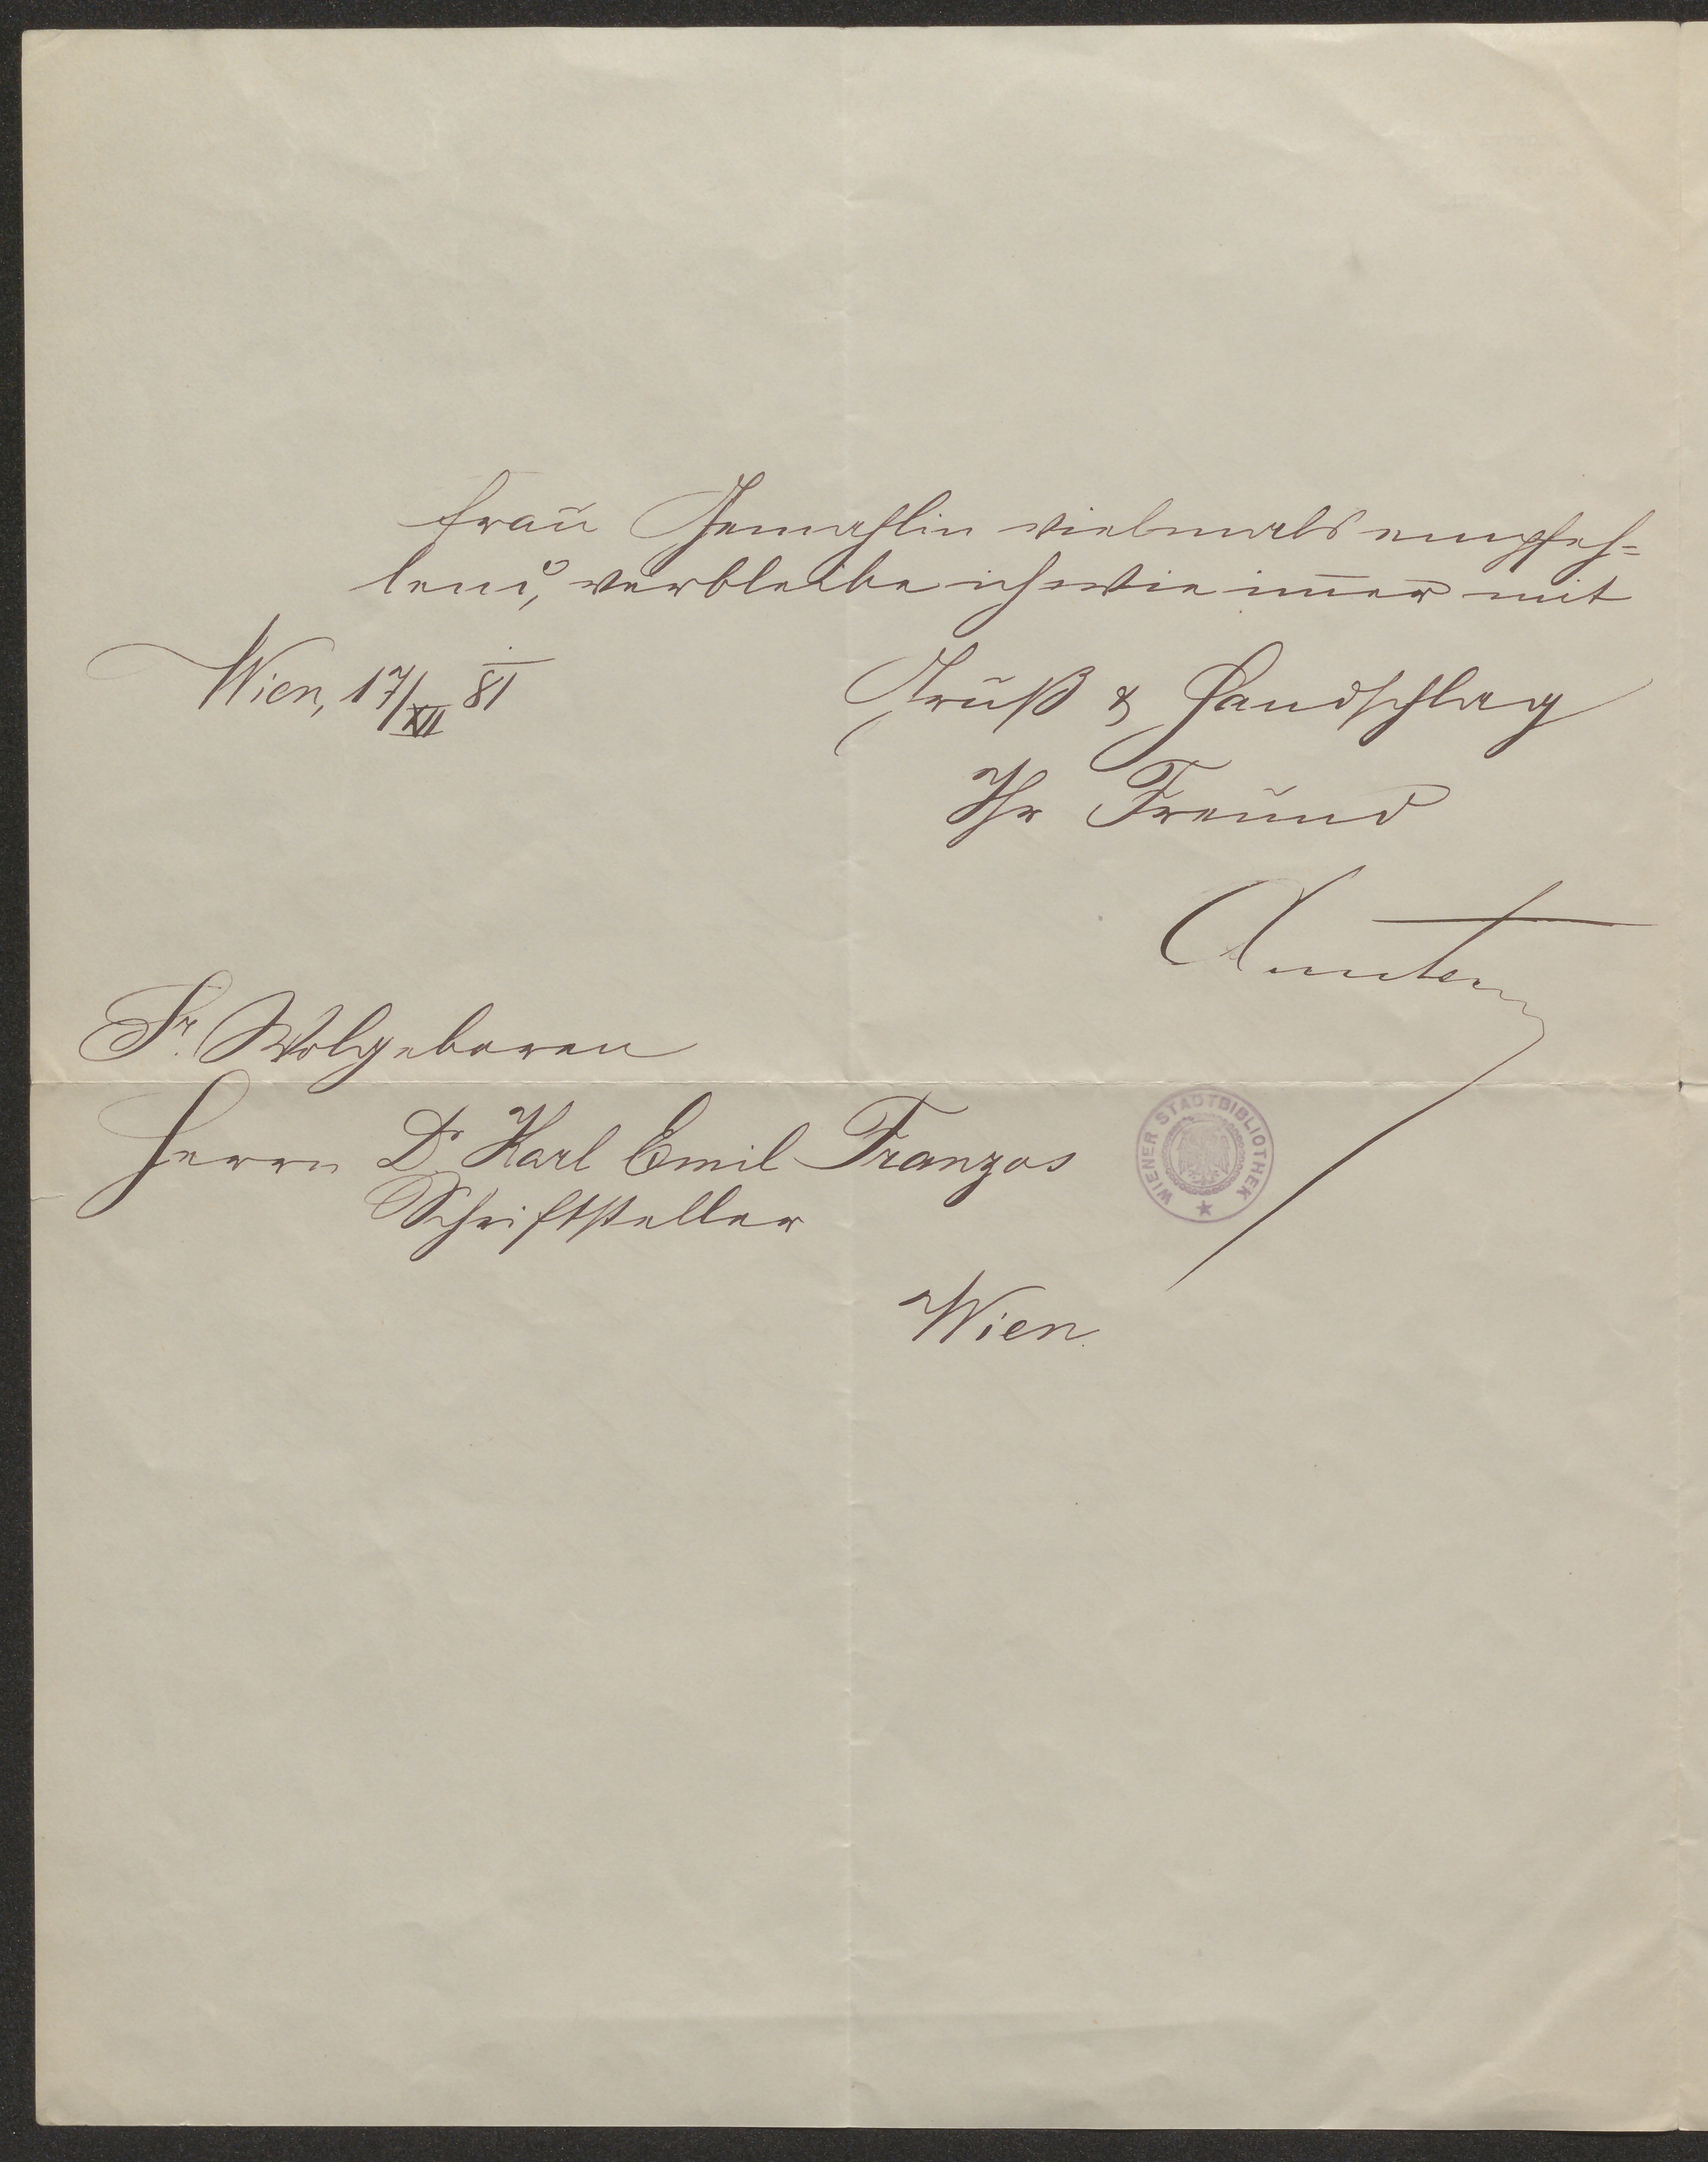 Frau Gemahlin vielmals empfeh=
lend, verbleibe ich wie im̅er mit
Wien, 17/XII 81
Gruß & Handschlag
Ihr Freund
Sr. Wolgeboren
Herrn Dr Karl Emil Franzos
Schriftsteller
WIENER STADTBIBLIOTHEK
Wien.